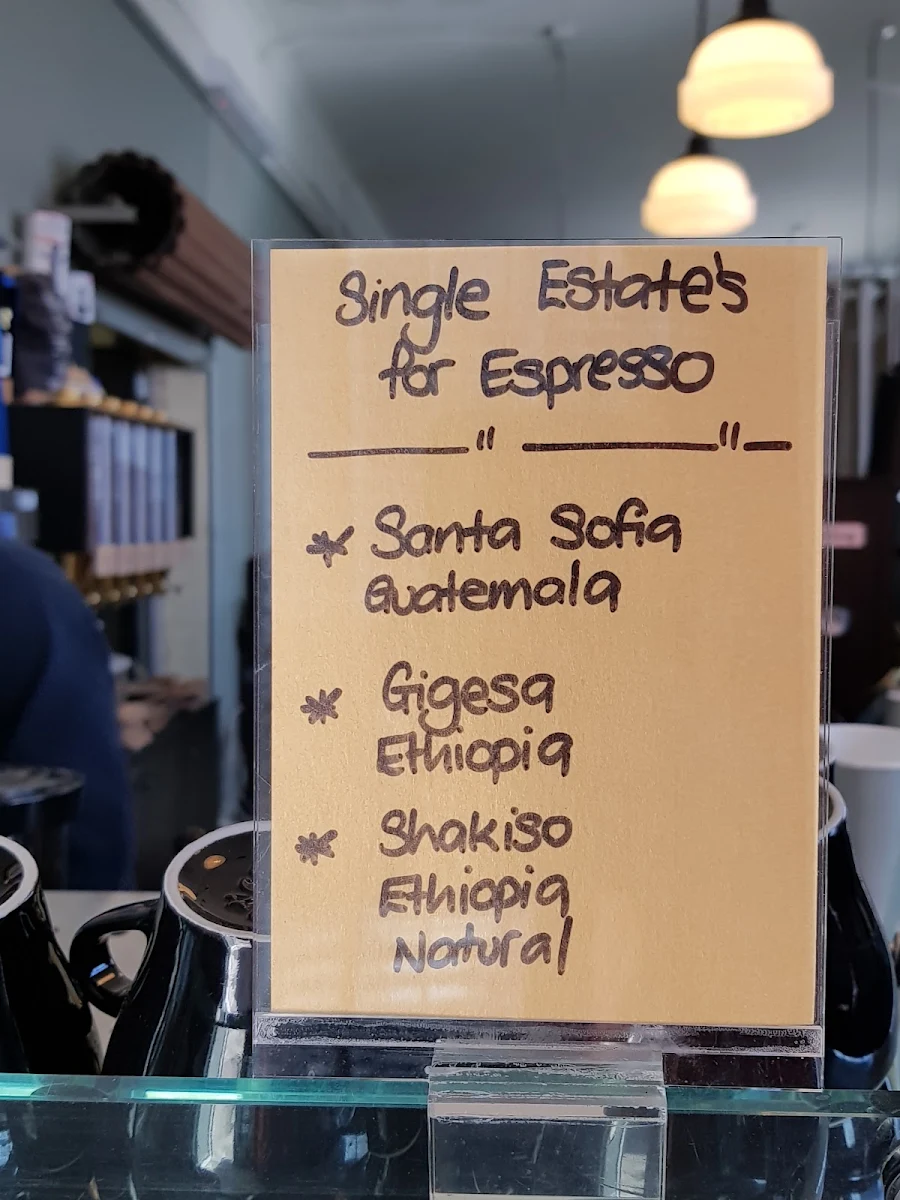 Single Estate's
for Espresso
* Santa Sofia
Guatemala
* Gigesa
Ethiopia
* Shakiso
Ethiopia
Natural